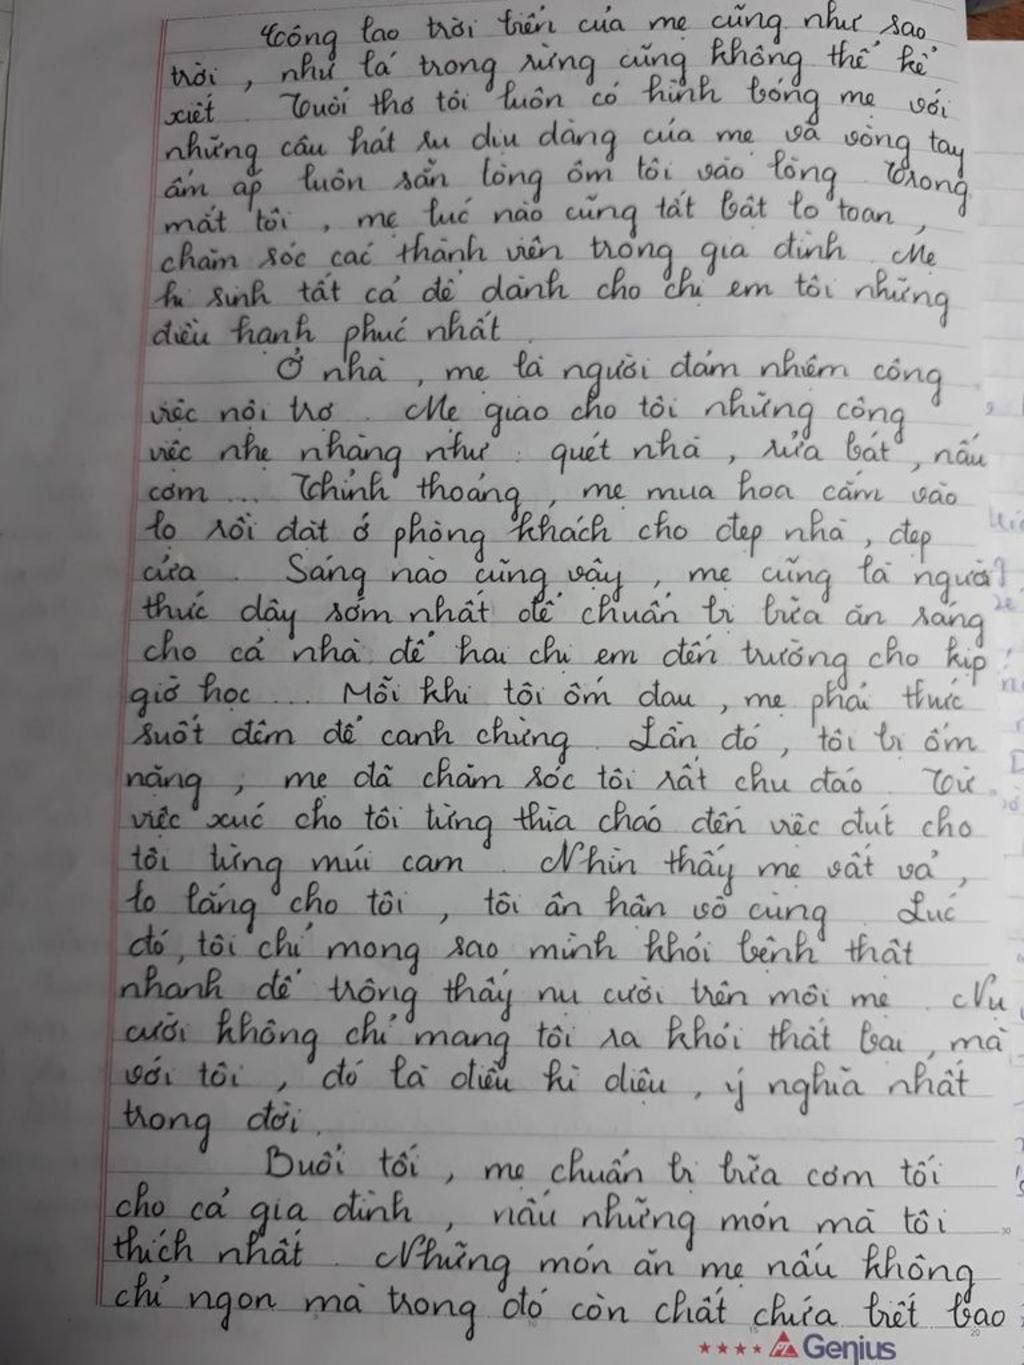 Công lao trời biển của mẹ cũng như sao
trời, như lá trong rừng cũng không thể kể
xiết. Tuổi thơ tôi luôn có hình bóng mẹ với
những câu hát ru dịu dàng của mẹ và vòng tay
ấm áp luôn sẵn lòng ôm tôi vào lòng. Trong
mắt tôi, mẹ lúc nào cũng tất bật lo toan,
chăm sóc các thành viên trong gia đình. Mẹ
hi sinh tất cả để dành cho chị em tôi những
điều hạnh phúc nhất.
Ở nhà, mẹ là người đảm nhiệm công
việc nội trợ. Mẹ giao cho tôi những công
việc nhẹ nhàng như: quét nhà, rửa bát, nấu
cơm... Thỉnh thoảng, mẹ mua hoa cắm vào
lọ rồi đặt ở phòng khách cho đẹp nhà, đẹp
cửa. Sáng nào cũng vậy, mẹ cũng là người
thức dậy sớm nhất để chuẩn bị bữa ăn sáng
cho cả nhà để hai chị em đến trường cho kịp
giờ học... Mỗi khi tôi ốm đau, mẹ phải thức
suốt đêm để canh chừng. Lần đó, tôi bị ốm
nặng, mẹ đã chăm sóc tôi rất chu đáo. Từ
việc xúc cho tôi từng thìa cháo đến việc đút cho
tôi từng múi cam. Nhìn thấy mẹ vất vả,
lo lắng cho tôi, tôi ân hận vô cùng. Lúc
đó, tôi chỉ mong sao mình khỏi bệnh thật
nhanh để trông thấy nụ cười trên môi mẹ. Nụ
cười không chỉ mang tôi ra khỏi thất bại, mà
với tôi, đó là điều kì diệu, ý nghĩa nhất
trong đời.
Buổi tối, mẹ chuẩn bị bữa cơm tối
cho cả gia đình, nấu những món mà tôi
thích nhất. Những món ăn mẹ nấu không
chỉ ngon mà trong đó còn chất chứa biết bao
Genius